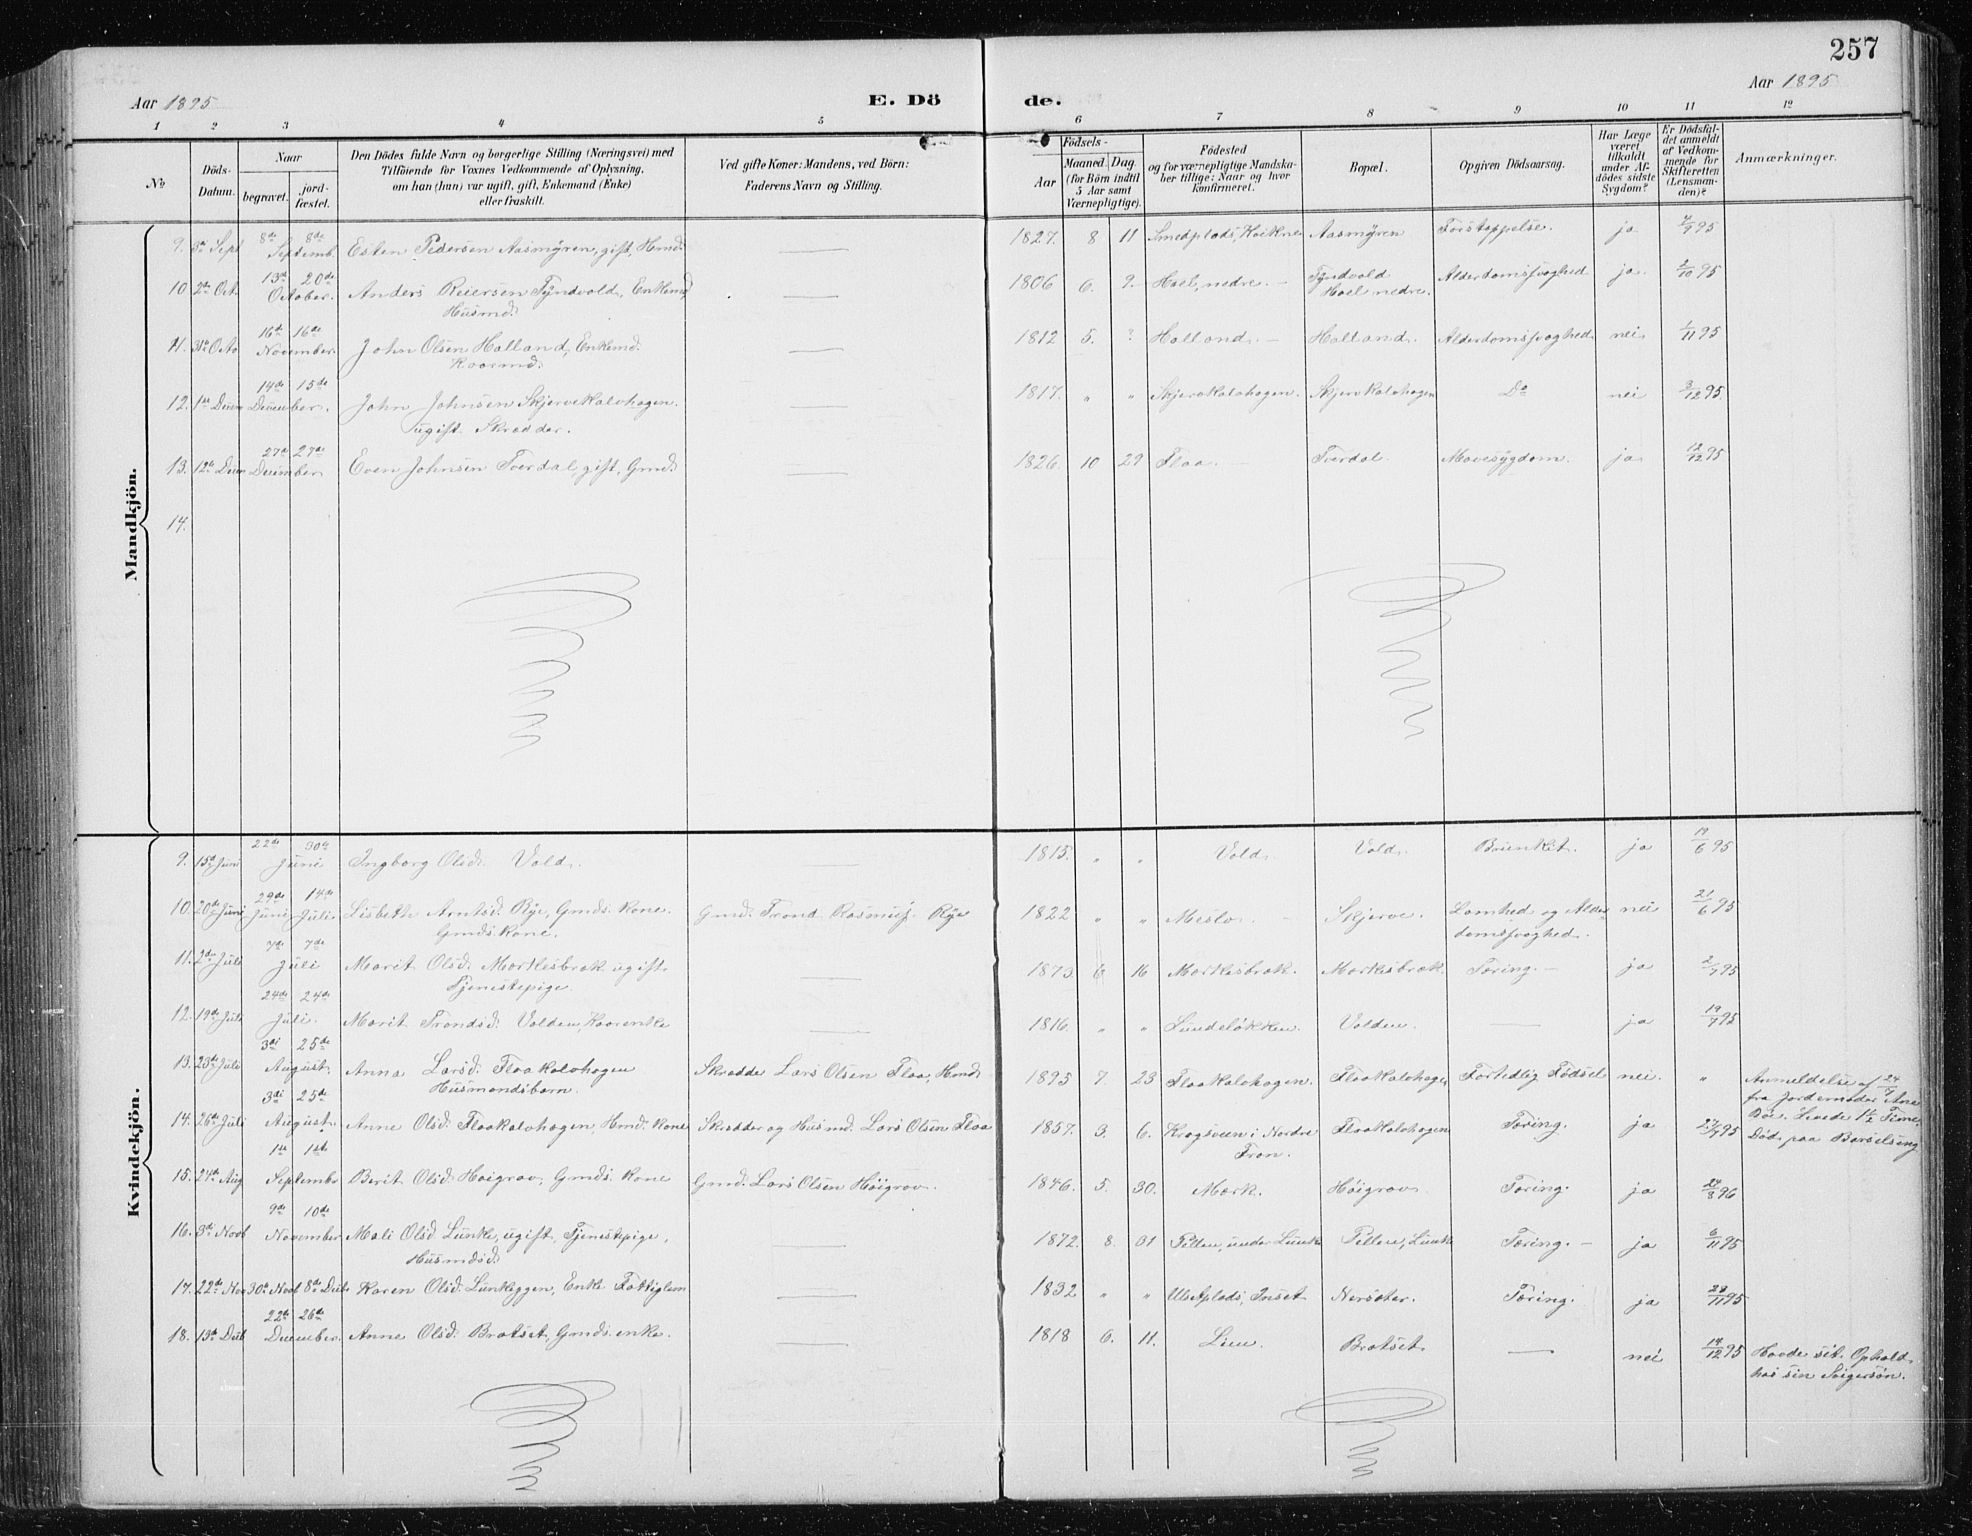 257
Aar 1895
E. Dö
de.
Aar 1895
1 2 3 4 5 6 7 8 9 10 11 12
No
Döds-Datum.
Naar
begravet.
jord-fæstet.
Den Dödes fulde Navn og borgerlige Stilling (Næringsvei) med
Tilföiende for Voxnes Vedkommende af Oplysning,
om han (hun) var ugift, gift, Enkemand (Enke)
eller fraskilt.
Ved gifte Koner: Mandens, ved Börn:
Faderens Navn og Stilling.
Födsels-
Aar
Maaned Dag
(for Börn indtil
5 Aar samt
Værnepligtige).
Födested
og for værnepligtige Mandska-
ber tillige: Naar og hvor
konfirmeret.
Bopæl.
Opgiven Dödsaarsag.
Har Læge
været
tilkaldt
under Af-
dödes sidste
Sygdom?
Er Dödsfal-
det anmeldt
af Vedkom-
mende for
Skifteretten
(Lensman-
den)?
Anmærkninger.
Mandkjön.
8de 8de
9. 3de Sept Septemb. Esten Pedersen Aasmyren, gift, Hmd. 1827. 8 11 Smedplads, Aasmyren Forstoppelse. ja 4/9 95
13de 20de
10 2den Oct. October. Anders Reiersen Tyndvold, Enkemd 1806 6. 9. Hoel, nedre. Tyndvold Alderdomssvaghed ja 2/10 95
Husmd.
Hoel nedre.
16de 16de
11. 31te Octo November. John Olsen Halland, Enkemd. 1812 5. ? Halland. Halland. Alderdomssvaghed nei 1/11 95
Kaarmd.
14de 15de
12. 1ste Decem December. John Johnsen Skjervekalvhagen. 1817. " " Skjervekalvhagen. Skjervekalvhagen Do nei 3/12 95
ugift Skrædder.
27de 27de
13. 12te Decem December Even Johnsen Tverdal gift, Gmd. 1826. 10 29 Flaa. Tverdal. Mavesygdom. ja 12/12 95
14.
Kvindekjön.
22de 30te
9. 15de Juni Juni Ingborg Olsd. Vold. 1815. " " Vold. Vold. Brunkit. ja 19/6 95
29de 14de
10. 20de Juni Juni Juli. Lisbeth Arntsd. Rye, Gmds. Kone. Gmd. Trond Rasmus. Rye 1822 " " Meslo. Skjerve. Lamhed og Alder nei 21/6 95
Gmds Kone.
domssvaghed.
7de 7de
11. 2den Juli Juli Marit Olsd. Mærkesbæk ugift. 1873 6 16 Mærkesbæk. Mærkesbæk Tæring. ja 2/7 95
Tjenestepige.
24de 24de
12. 19de Juli Juli. Marit Trondsd. Volden, Kaarenke 1816. " " Lundeløkken. Volden. ja 19/7 95
3die 25de
13. 23de Juli August. Anna Larsd. Flaakalvhagen Skrædder Lars Olsen Flaa, Hmd. 1895 7. 23 Flaakalvhagen. Flaakalvhagen Fortidlig Födsel nei. " Anmeldelse af 24/7
Husmandsbarn.
fra Jordemoder Ane
Bøe. Levede 1½ Time.
3die 25de
14. 26de Juli August. Anne Olsd. Flaakalvhagen, Hmd. Kone Skrædder og Husmd. Lars Olsen Flaa 1857. 3. 6. Kragsveen i Nordre Flaakalvhagen Tæring. ja 27/7 95 Død paa Barselseng
Fron.
1ste 1ste
15. 24de Aug September Berit Olsd. Høigrav, Gmds. Kone Gmd. Lars Olsen Høigrav. 1846. 5. 30. Mærk. Høigrav. Tæring. ja 24/8 96
9de 10de
16. 3die Novb November Mali Olsd. Lunke, ugift, Tjenestepige, 1872. 8. 31 under Lunke Lunke Tæring. ja 6/11 95
Husmdsd.
17. 22de Nov 30te Novb 8de Decb Karen Olsd. Lunkeggen, Enke Fattiglem 1832 " " Inset Nersæter. Tæring. ja 23/11 95
22de 26de
18. 13de Decb December. Anne Olsd. Bratset, Gmds. enke. 1818 6. 11. Lien. Bratset. nei 14/12 95 Havde sit Ophold
hos sin Svigersøn.